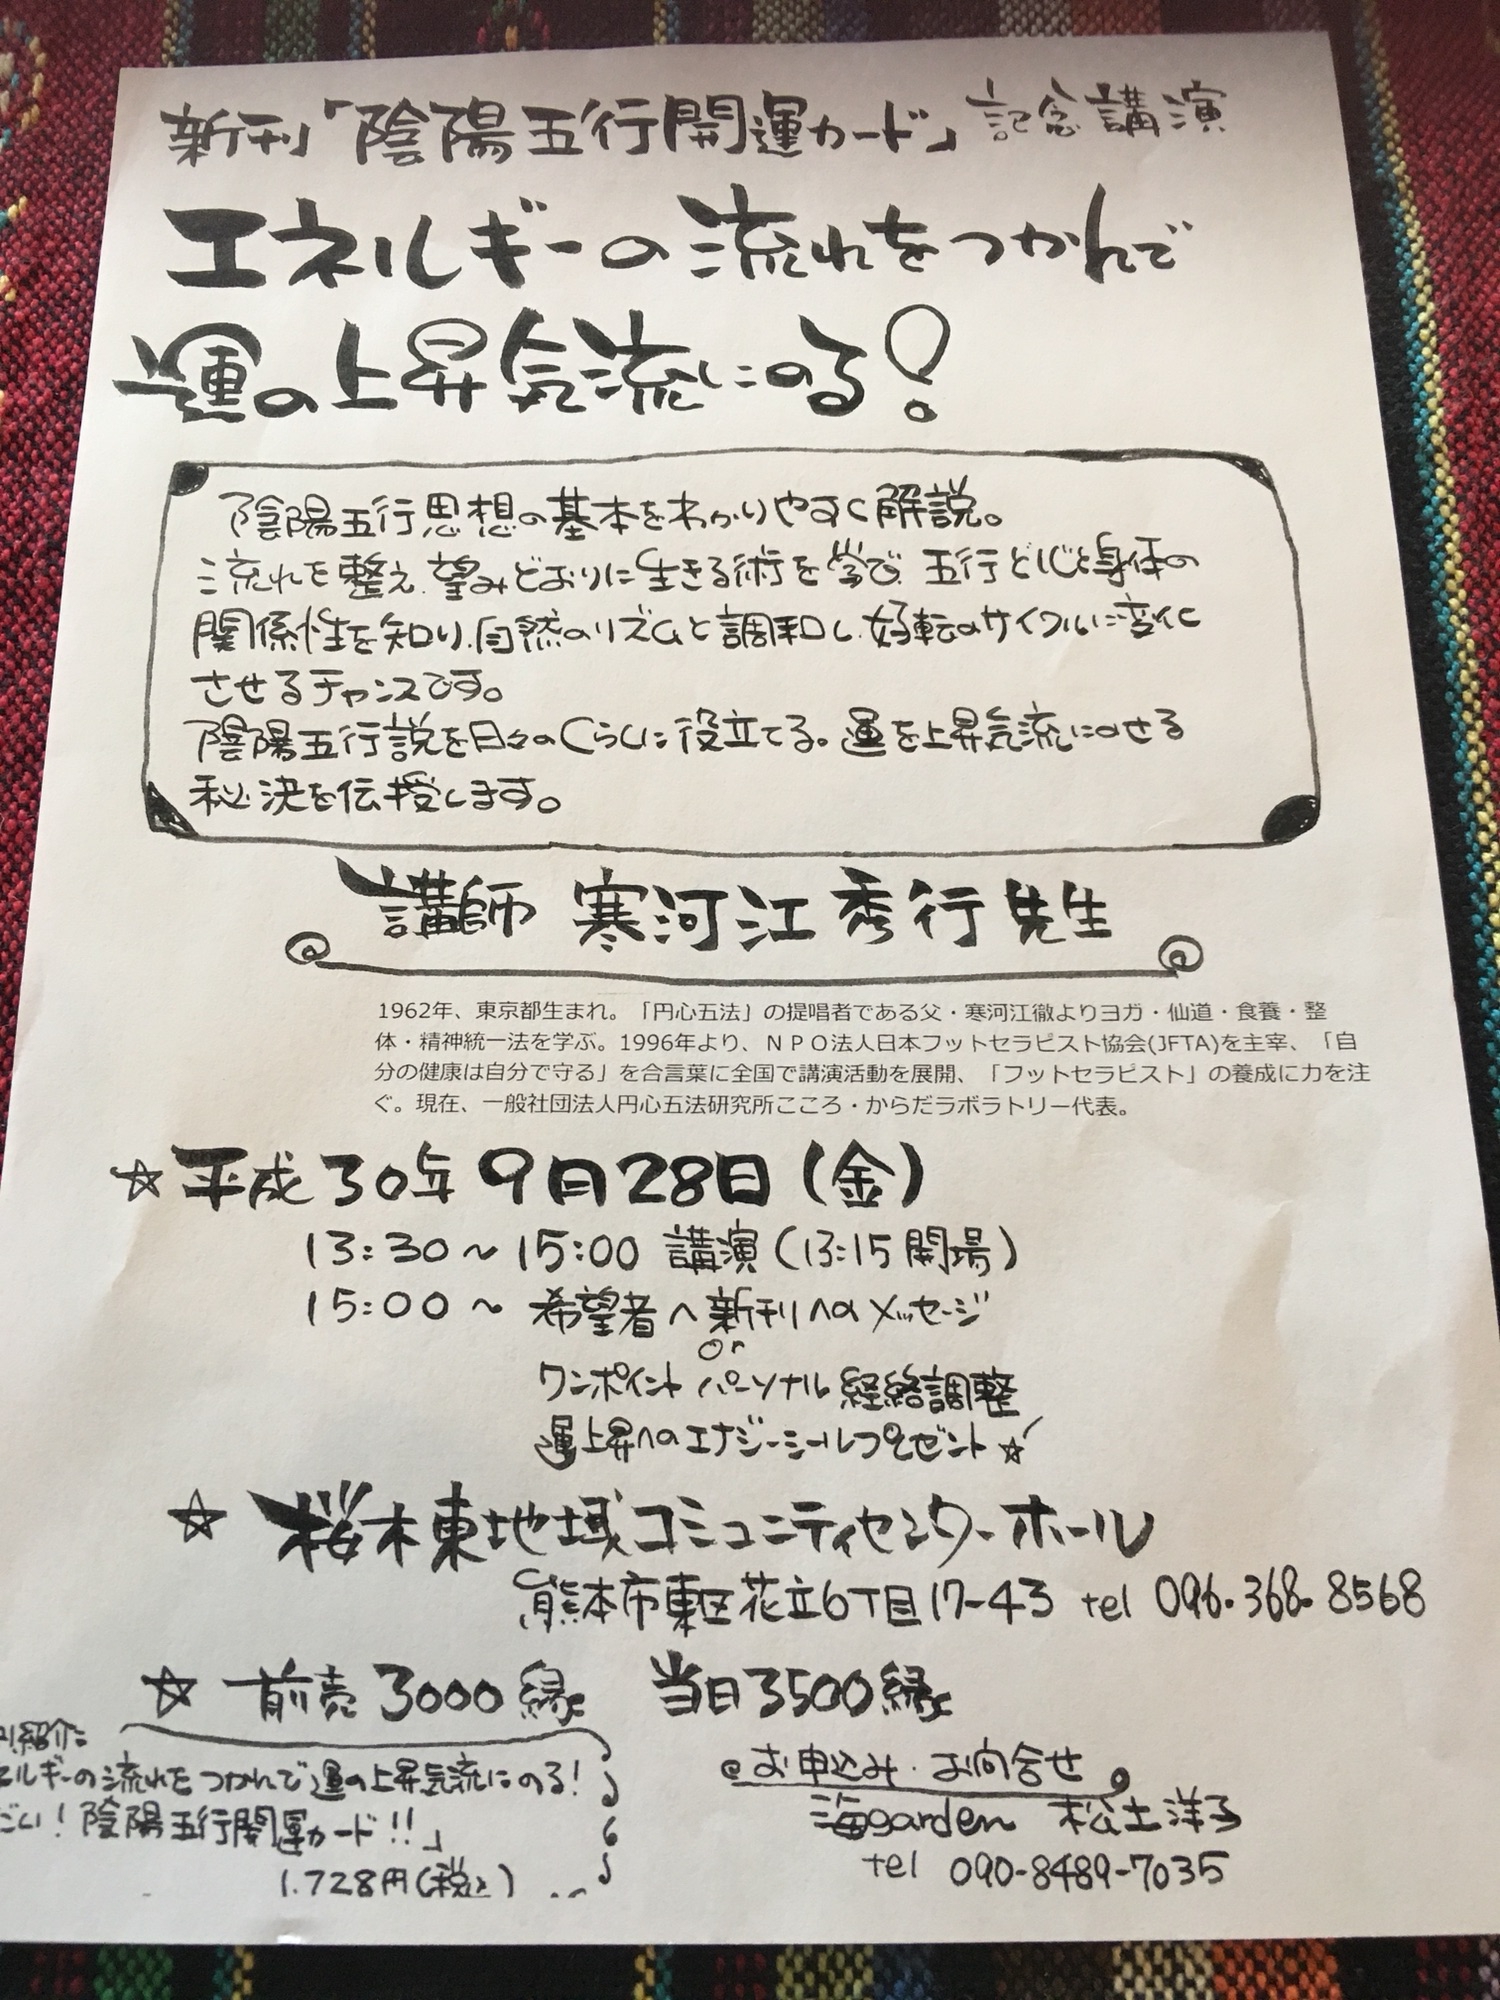 新刊「陰陽五行開運カード」記念講演
エネルギーの流れをつかんで
運の上昇気流にのる!
陰陽五行思想の基本をわかりやすく解説。
流れを整え、望みどおりに生きる術を学び、五行と心と身体の
関係性を知り、自然のリズムと調和し、好転のサイクルに変化
させるチャンスです。
陰陽五行説を日々のくらしに役立てる。運を上昇気流にのせる
秘決を伝授します。
講師 寒河江 秀行 先生
1962年、東京都生まれ。「円心五法」の提唱者である父・寒河江徹よりヨガ・仙道・食養・整
体・精神統一法を学ぶ。1996年より、ＮＰＯ法人日本フットセラピスト協会(JFTA)を主宰、「自
分の健康は自分で守る」を合言葉に全国で講演活動を展開、「フットセラピスト」の養成に力を注
ぐ。現在、一般社団法人円心五法研究所こころ・からだラボラトリー代表。
☆平成30年 9月28日(金)
13:30〜15:00 講演(13:15開場)
15:00〜 希望者へ新刊へのメッセージ
or
ワンポイント パーソナル経絡調整
運上昇へのエナジーシールプレゼント☆
☆ 桜木東地域コミュニティセンターホール
熊本市東区花立6丁目17-43 tel 096.368.8568
☆ 前売3000縁 当日3500縁
刊紹介:
ネルギーの流れをつかんで運の上昇気流にのる!
ごい!陰陽五行開運カード!!」
1.728円(税込)
@お申込み・お問合せ
海garden 松土洋子
tel 090-8489-7035